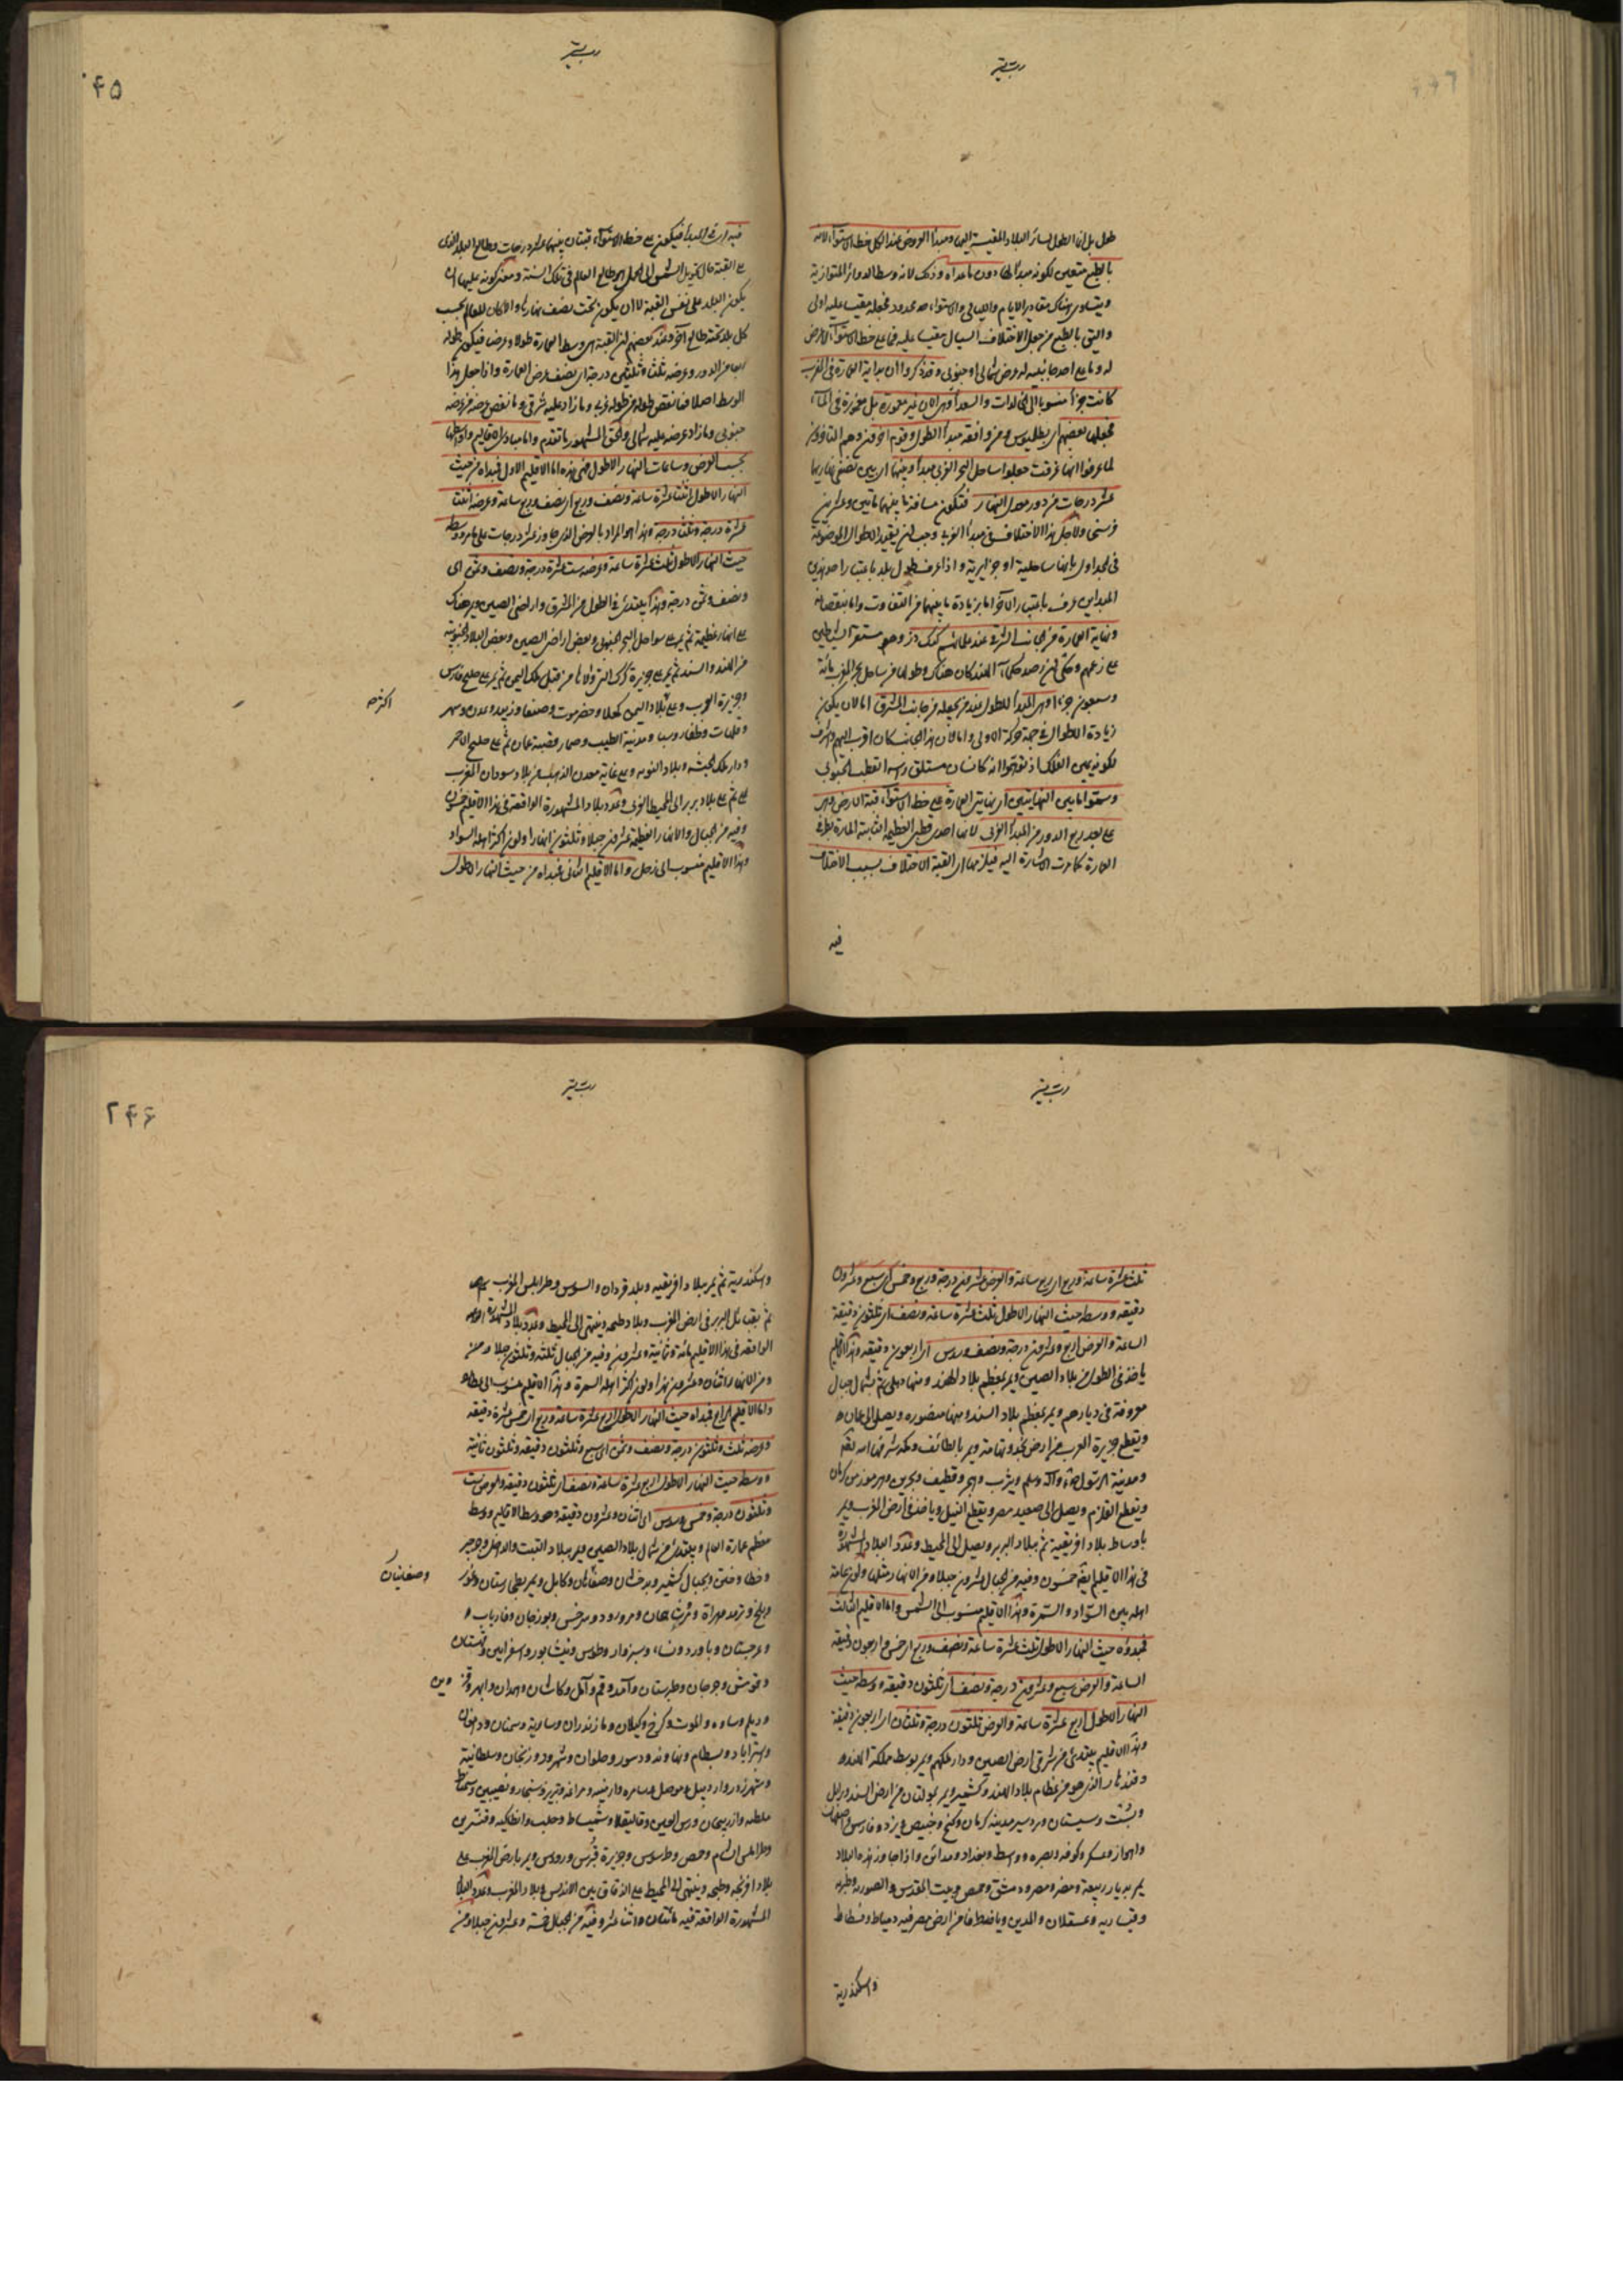 طول بل ان الطول لسائر البلاد المقيسة اليها ومبدأ العروض عند الكل خط الاستواء لانه
بالطبع متعين لكونه مبدأ لها دون ما عداه وذلك لانه وسط الدوائر المتوازية
ويتساوى هناك مقادير الايام والليالى والاستواء محدود فجعله مقيسا عليه اولى
واليق بالطبع من جعل الاختلاف السيال مقيسا عليه فما على خط الاستواء لا عرض
له وما على احد جانبيه له عرض شمالى او جنوبى وقد ذكروا ان بداية العمارة فى الغرب
كانت جزائر منسوبا الى الخالدات والسعداء وهى الآن غير معمورة بل مغمورة فى الماء
فجعلها بعضهم اى بطليموس ومن وافقه مبدأ الطول وقوم آخرون وهم المتأخرون
لما عرفوا انها غرقت جعلوا ساحل البحر الغربى مبدأ وبينهما اى بين نصفى نهاريهما
عشر درجات من دور معدل النهار فتكون مسافة ما بينهما مأتين وعشرين
فرسخا ولاجل هذا الاختلاف فى مبدأ الغربى وجب ان يقيد الاطوال الموضوعة
فى الجداول بانها ساحلية او جزايرية واذا عرف طول بلد باعتبار احد هذين
المبدأين عرف باعتبار الآخر اما بزيادة ما بينهما من التفاوت واما بنقصانه
ونهاية العمارة من الجانب الشرقى عندهم كنك دز وهو مستقر الشياطين
على زعمهم وحكى ان رصد حكماء الهند كان هناك وطولها من ساحل بحر الغرب مائة
وسبعون جزءا وهى المبدأ للطول عند من يجعله من جانب المشرق اما لان يكون
زيادة الاطوال فى جهة حركة الاولى واما لان هذا الجانب كان اقرب اليهم واشرف
لكونه يمين الفلك اذ توهموا انه كانسان مستلق رأسه القطب الجنوبى
وسموا ما بين النهايتين اى نهايتى العمارة على خط الاستواء قبة الارض وهى
على بعد ربع الدور من المبدأ الغربى لانها احدى قطبى العظيمة الثابتة المارة بطرفى
العمارة كما مرت الاشارة اليه فيلزمها اى القبة الاختلاف بسبب الاختلاف
فيه
٢٤٥
فيه اى فى المبدأ فيكون على خط الاستواء قبتان بينهما عشر درجات وطالع البلد الذى
على القبة حال تحويل الشمس الى الحمل هو طالع العالم فى تلك السنة ومعنى كونه عليها ان
يكون البلد على نفس القبة لا ان يكون تحت نصف نهارها والا لكان للعالم بحسب
كل بلد تحته طالع آخر وعند بعضهم ان القبة هى وسط العمارة طولا وعرضا فيكون طوله
ربعا من الدور وعرضه ثلثا وثلثين درجة اى نصف عرض العمارة واذا جعل هذا
الوسط اصلا فما نقص طوله من طوله غربى وما زاد عليه شرقى وما نقص عرضه من عرضه
جنوبى وما زاد عرضه عليه شمالى والحق المشهور ما تقدم واما مبادى الاقاليم واوساطها
بحسب العرض وساعات النهار الاطول فهى هذه اما الاقليم الاول فمبدأه من حيث
النهار الاطول اثنتا عشرة ساعة ونصف وربع اى نصف وربع ساعة وعرضه اثنتا
عشرة درجة وثلثا درجة وهذا هو المراد بالعرض الذى جاوز عشر درجات على ما مر ووسطه
حيث النهار الاطول ثلث عشرة ساعة وعرضه ست عشرة درجة ونصف وثمن اى
ونصف وثمن درجة وهذا يبتدئ فى الطول من المشرق واراضى الصين ويمر هناك
على انهار عظيمة ثم يمر على سواحل البحر الجنوبى وبعض اراضى الصين وبعض البلاد الجنوبية
من الهند والسند ثم يمر على جزيرة كرك التى ولاها من قبل ملك اليمن ثم يمر على خليج فارس
وجزيرة العرب وعلى بلاد اليمن كعلا وحضرموت وصنعا وزبيد وعدن وشحر
وقلهات وظفار وسبا ومدينة الطيب وصحار قصبة عمان ثم على خليج الاحمر
ودار ملك الحبشة وبلاد النوبة وعلى غانة معدن الذهب من بلاد سودان المغرب
ثم على بلاد بربر الى المحيط الغربى وعدد بلاد المشهورة الواقعة فى هذا الاقليم خمسون
وفيه من الجبال والانهار العظيمة عشرون جبلا وثلثون نهرا ولون اكثر اهله السواد
وهذا الاقليم منسوب الى زحل واما الاقليم الثانى فمبدأه من حيث النهار الاطول
ثلث عشرة ساعة وربع اى ربع ساعة والعرض عشرون درجة وربع وخمس اى سبع وعشرون
دقيقة ووسطه حيث النهار الاطول ثلث عشرة ساعة ونصف اى ثلثون دقيقة
الساعة والعرض اربع وعشرون درجة ونصف وسدس اى اربعون دقيقة وهذا الاقليم
ياخذ فى الطول من بلاد الصين ويمر بمعظم بلاد الهند ومنها دهلى ثم بشمال جبال
معروفة فى ديارهم ويمر بمعظم بلاد السند ومنها منصوره ويصل الى عمان و
ويقطع جزيرة العرب من ارض نجد وتهامة ويمر بالطائف ومكة شرفها الله تعالى
ومدينة الرسول وآله وسلم ويثرب وهجر وقطيف وبحرين وهرموز من كرمان
ويقطع القلزم ويصل الى صعيد مصر ويقطع النيل وياخذ فى ارض المغرب ويمر
باوساط بلاد افريقية ثم ببلاد البربر ويصل الى المحيط وعدد البلاد المشهورة
فى هذا الاقليم ايضا خمسون وفيه من الجبال عشرون جبلا ومن الانهار مثلها ولون عامة
اهله بين السواد والسمرة وهذا الاقليم منسوب الى الشمس واما الاقليم الثالث
فمبدؤه حيث النهار الاطول ثلث عشرة ساعة ونصف وربع اى خمس واربعون دقيقة
الساعة والعرض سبع وعشرون درجة ونصف اى ثلثون دقيقة ووسطه حيث
النهار الاطول اربع عشرة ساعة والعرض ثلثون درجة وثلثان اى اربعون دقيقة
وهذا الاقليم يبتدئ من شرقى ارض الصين ودار ملكهم ويمر بوسط مملكة الهند و
وقندهار الذى هو من عظام بلاد الهند وكشمير ويمر بمولتان من ارض السند وزابل
وبست وسيستان وبردسير مدينة كرمان وكيج وخبيص ويزد وفارس واصفهان
واهواز وعسكر وكوفه وبصره وواسط وبغداد ومدائن واذا جاوز هذه البلاد
يمر بديار ربيعة ومضر ومصر ودمشق وحمص وبيت المقدس والصورية وطبرية
وقيسارية وعسقلان والمدين وياخذ من ارض مصر فيه دمياط وفسطاط
واسكندرية
٢٤۶
واسكندرية ثم يمر ببلاد افريقيه وبلد قردان والسوس وطرابلس المغرب
ثم بقبائل البربر فى ارض المغرب وبلاد طنجه وينتهى الى المحيط وعدد بلاد المشهورة
الواقعة فى هذا الاقليم مائة وثمانية وعشرون وفيه من الجبال ثلثة وثلثون جبلا
ومن الانهار اثنان وعشرون نهرا ولون اكثر اهله السمرة وهذا الاقليم منسوب الى عطارد
واما الاقليم الرابع فمبدأه حيث النهار الاطول اربع عشرة ساعة وربع اى خمس عشرة دقيقة
وعرضه ثلث وثلثون درجة ونصف وثمن اى سبع وثلثون دقيقة وثلثون ثانية
ووسطه حيث النهار الاطول اربع عشرة ساعة ونصف اى ثلثون دقيقة والعرض ست
وثلثون درجة وخمس وسدس اى اثنان وعشرون دقيقة وهو وسط الاقاليم ووسط
معظم عمارة العالم ويبتدئ من شمال بلاد الصين ويمر ببلاد التبت
وخطا وختن وبجبال كشمير وبدخشان وصغانيان وكابل ويمر بطخارستان وغور
وبلخ وترمد وهراة ومروشاهجان ومرورود وسرخس وبوزجان وفارياب و
وغرجستان وباورد ونسا وسبزوار وطوس ونيشابور واسفراين وقهستان
وقومش وجرجان وطبرستان وآمد وقم وآمل وكاشان وهمدان وابهر وقزوين
وديلم وساوه والموت وكرخ وكيلان ومازندران وسارية وسمنان ودامغان
واستراباد وبسطام ونهاوند ودينور وحلوان وشهرزور وزنجان وسلطانية
واردبيل وموصل وارمنيه ومراغه وتبريز وسنجار ونصيبين
ملطيه واذربيجان وراس العين وقاليقلا وشميساط وحلب وانطاكيه وقنسرين
وطرابلس الشام وحمص وطرسوس وجزيرة قبرس ورودس ويمر بارض المغرب على
بلاد افرنجه وطنجه وينتهى الى المحيط على الزقاق بين الاندلس وبلاد المغرب وعدد البلاد
المشهورة الواقعة فيه مائتان واثنا عشر وفيه من الجبال خمسة وعشرون جبلا ومن
وصغانيان